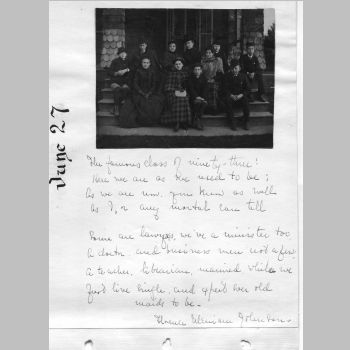 June 27
The famous class of ninety-three!
Here we are as we used to be;
As we are now, you know as well
As I, or any mortal can tell
Some are lawyers, we've a minister too
A doctor, and business men not a few
A teacher, librarian, married while we
Just live single, and old
maids to be.
Florence